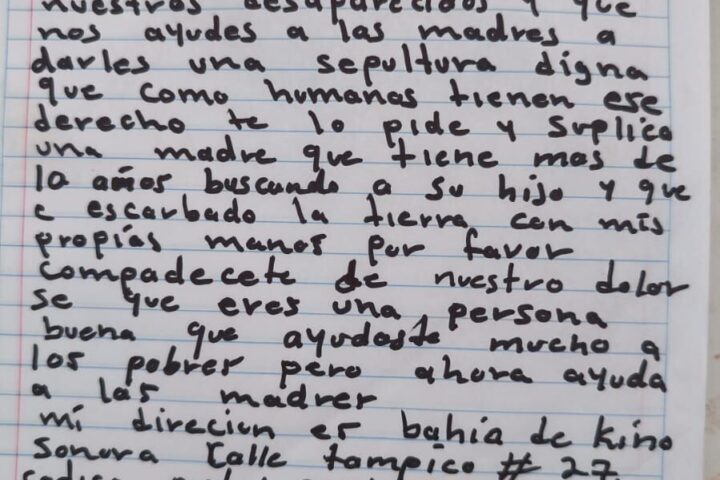 nuestros desaparecidos y que
nos ayudes a las madres a
darles una sepultura digna
que como humanas tienen ese
derecho te lo pide y suplico
una madre que tiene mas de
10 años buscando a su hijo y que
e escarbado la tierra con mis
propias manos por favor
compadecete de nuestro dolor
se que eres una persona
buena que ayudaste mucho a
los pobrer pero ahora ayuda
a las madrer
mi direcion er bahia de kino
sonora Calle tampico # 27